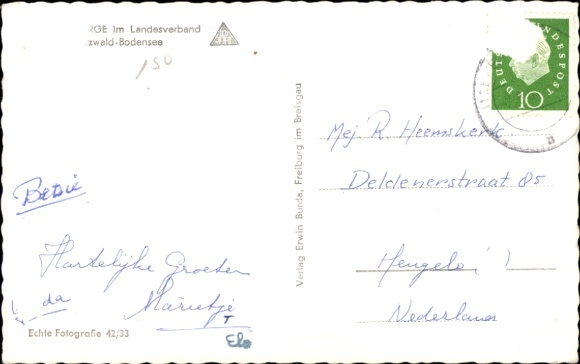 RGE im Landesverband
zwald-Bodensee
150
Betsie
Hartelijke Groeten
da Marietje
T
Echte Fotografie 42/33
Verlag Erwin Burda, Freiburg im Breisgau
DEUTSCHE BUNDESPOST
10
Mej. R. Heemskerk
Deldenerstraat 85
Hengelo (
)
Nederland